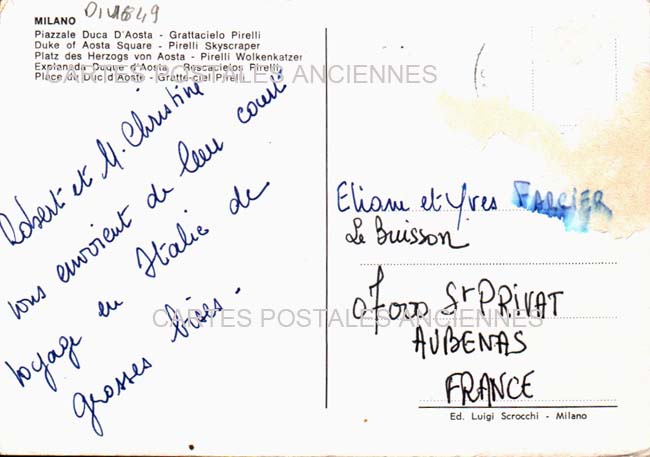 DIV1849
MILANO
Piazzale Duca D'Aosta - Grattacielo Pirelli
Duke of Aosta Square - Pirelli Skyscraper
Platz des Herzogs von Aosta - Pirelli Wolkenkatzer
Esplanada Duque d'Aosta - Rescacielos Pirelli
Place du Duc d'Aoste - Gratte-ciel Pirelli
CARTES POSTALES ANCIENNES
Robert et M. Christine
vous envoient de leur court
voyage en Italie de
grosses bises.
Eliane et Yves FARGIER
Le Buisson
07000 St PRIVAT
AUBENAS
FRANCE
CARTES POSTALES ANCIENNES
Ed. Luigi Scrocchi - Milano